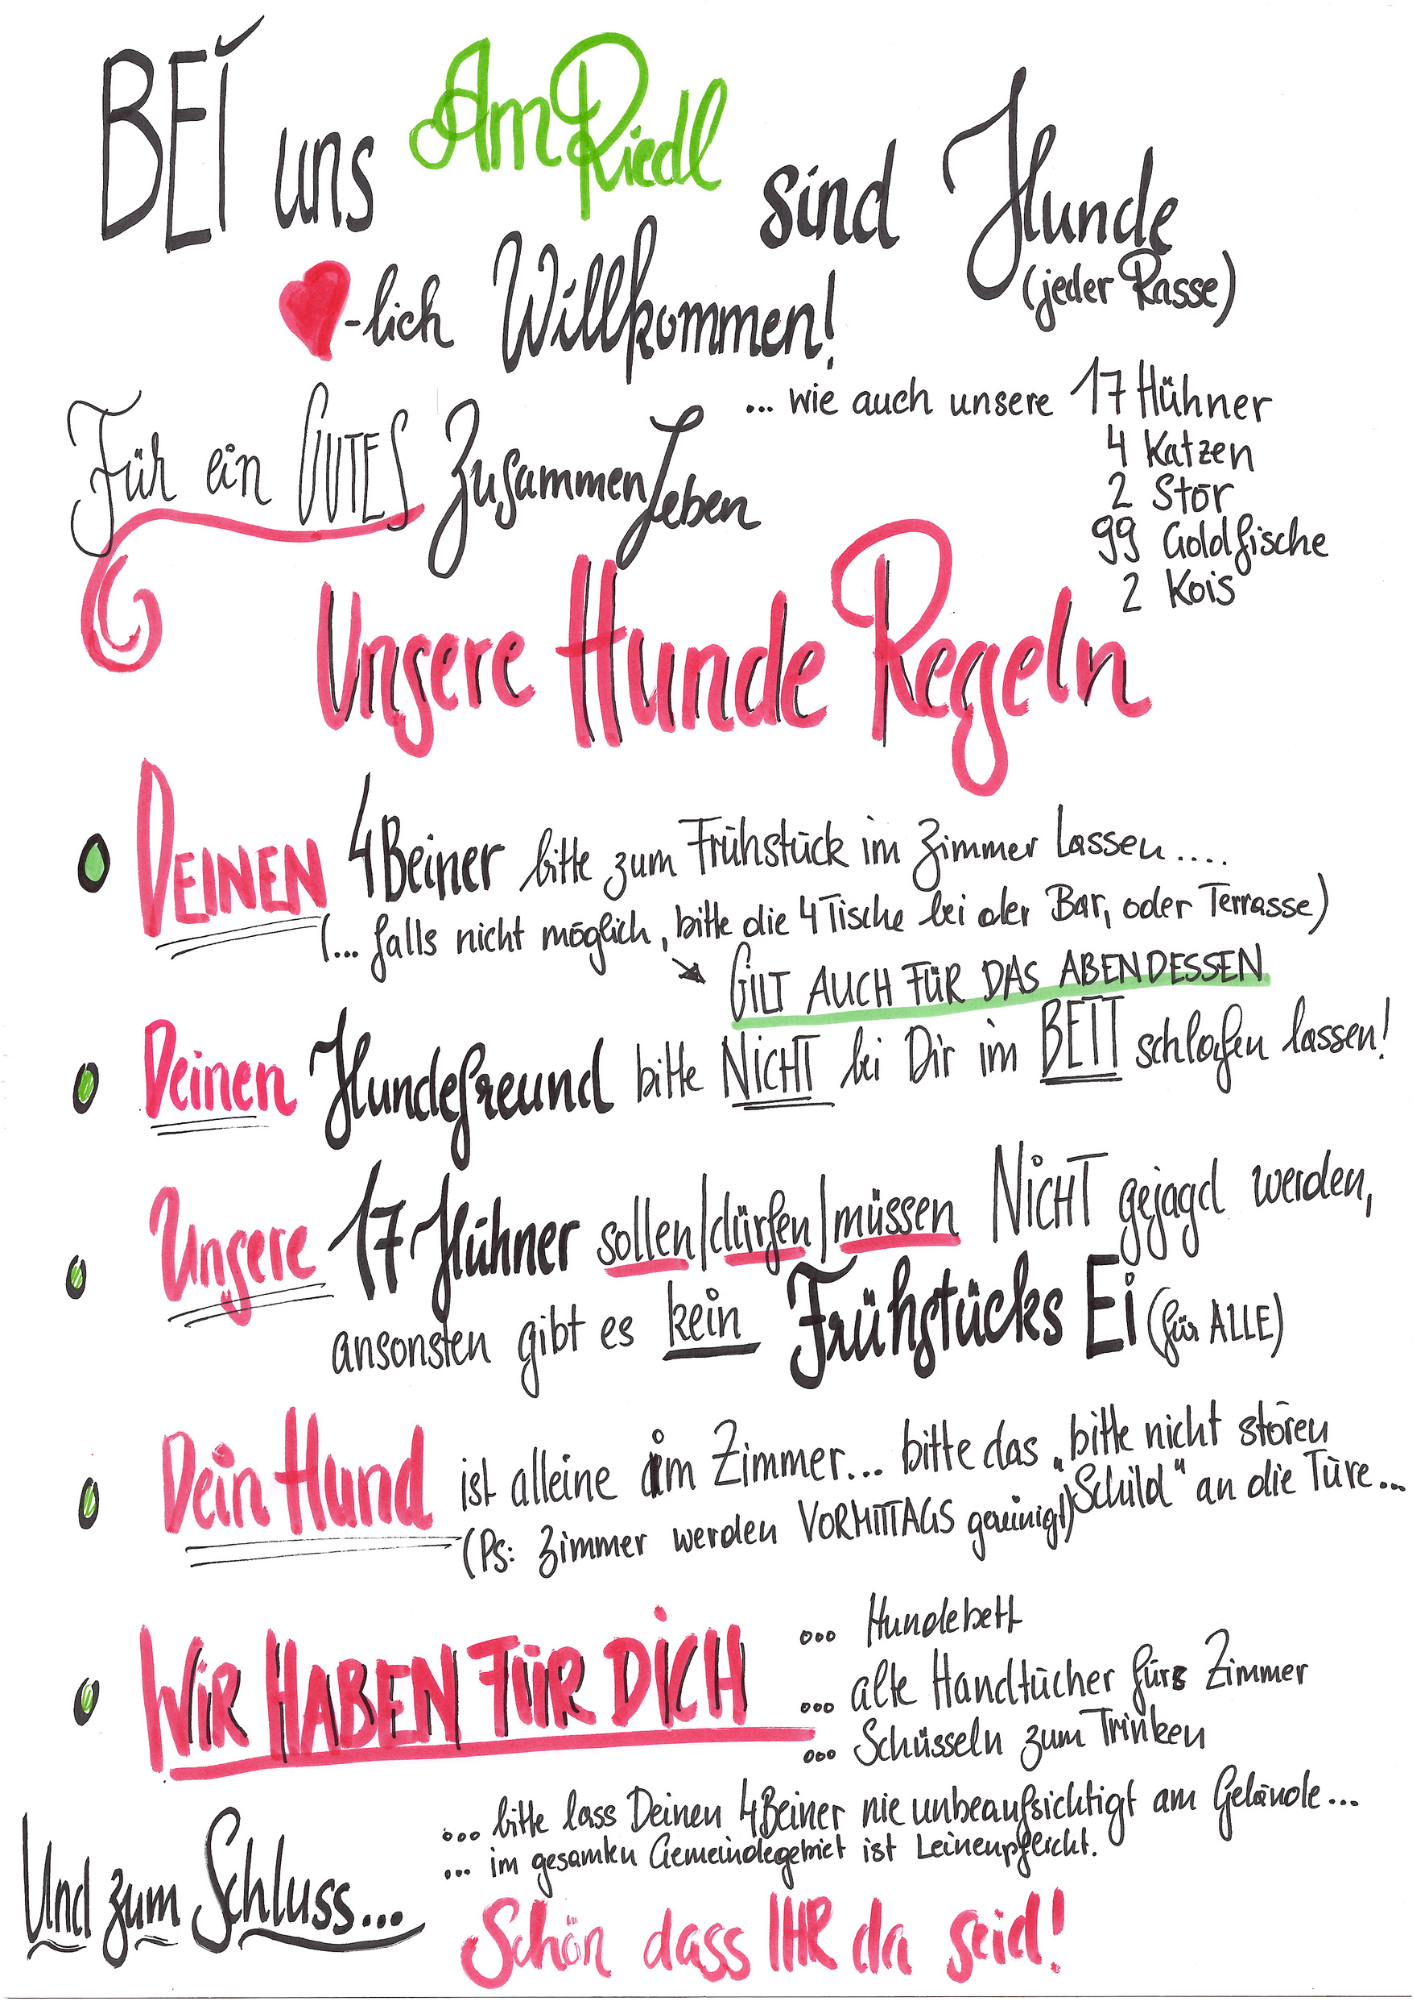 BEI uns Am Riedl sind Hunde
(jeder Rasse)
-lich Willkommen!
... wie auch unsere 17 Hühner
4 Katzen
2 Stör
99 Goldfische
2 Kois
Für ein GUTES ZusammenLeben
Unsere Hunde Regeln
DEINEN 4Beiner bitte zum Frühstück im Zimmer Lassen....
(... falls nicht möglich, bitte die 4 Tische bei der Bar, oder Terrasse)
GILT AUCH FÜR DAS ABENDESSEN
Deinen Hundefreund bitte NICHT bei Dir im BETT schlafen lassen!
Unsere 17 Hühner sollen/dürfen/müssen NICHT gejagd werden,
ansonsten gibt es kein Frühstücks Ei (für ALLE)
Dein Hund ist alleine im Zimmer... bitte das „bitte nicht stören
Schild" an die Türe...
(Ps: Zimmer werden VORMITTAGS gereinigt)
WIR HABEN FÜR DICH
... Hundebett
... alte Handtücher fürs Zimmer
... Schüsseln zum Trinken
Und zum Schluss...
... bitte lass Deinen 4Beiner nie unbeaufsichtigt am Gelände...
... im gesamten Gemeindegebiet ist Leinenpflicht.
Schön dass IHR da seid!